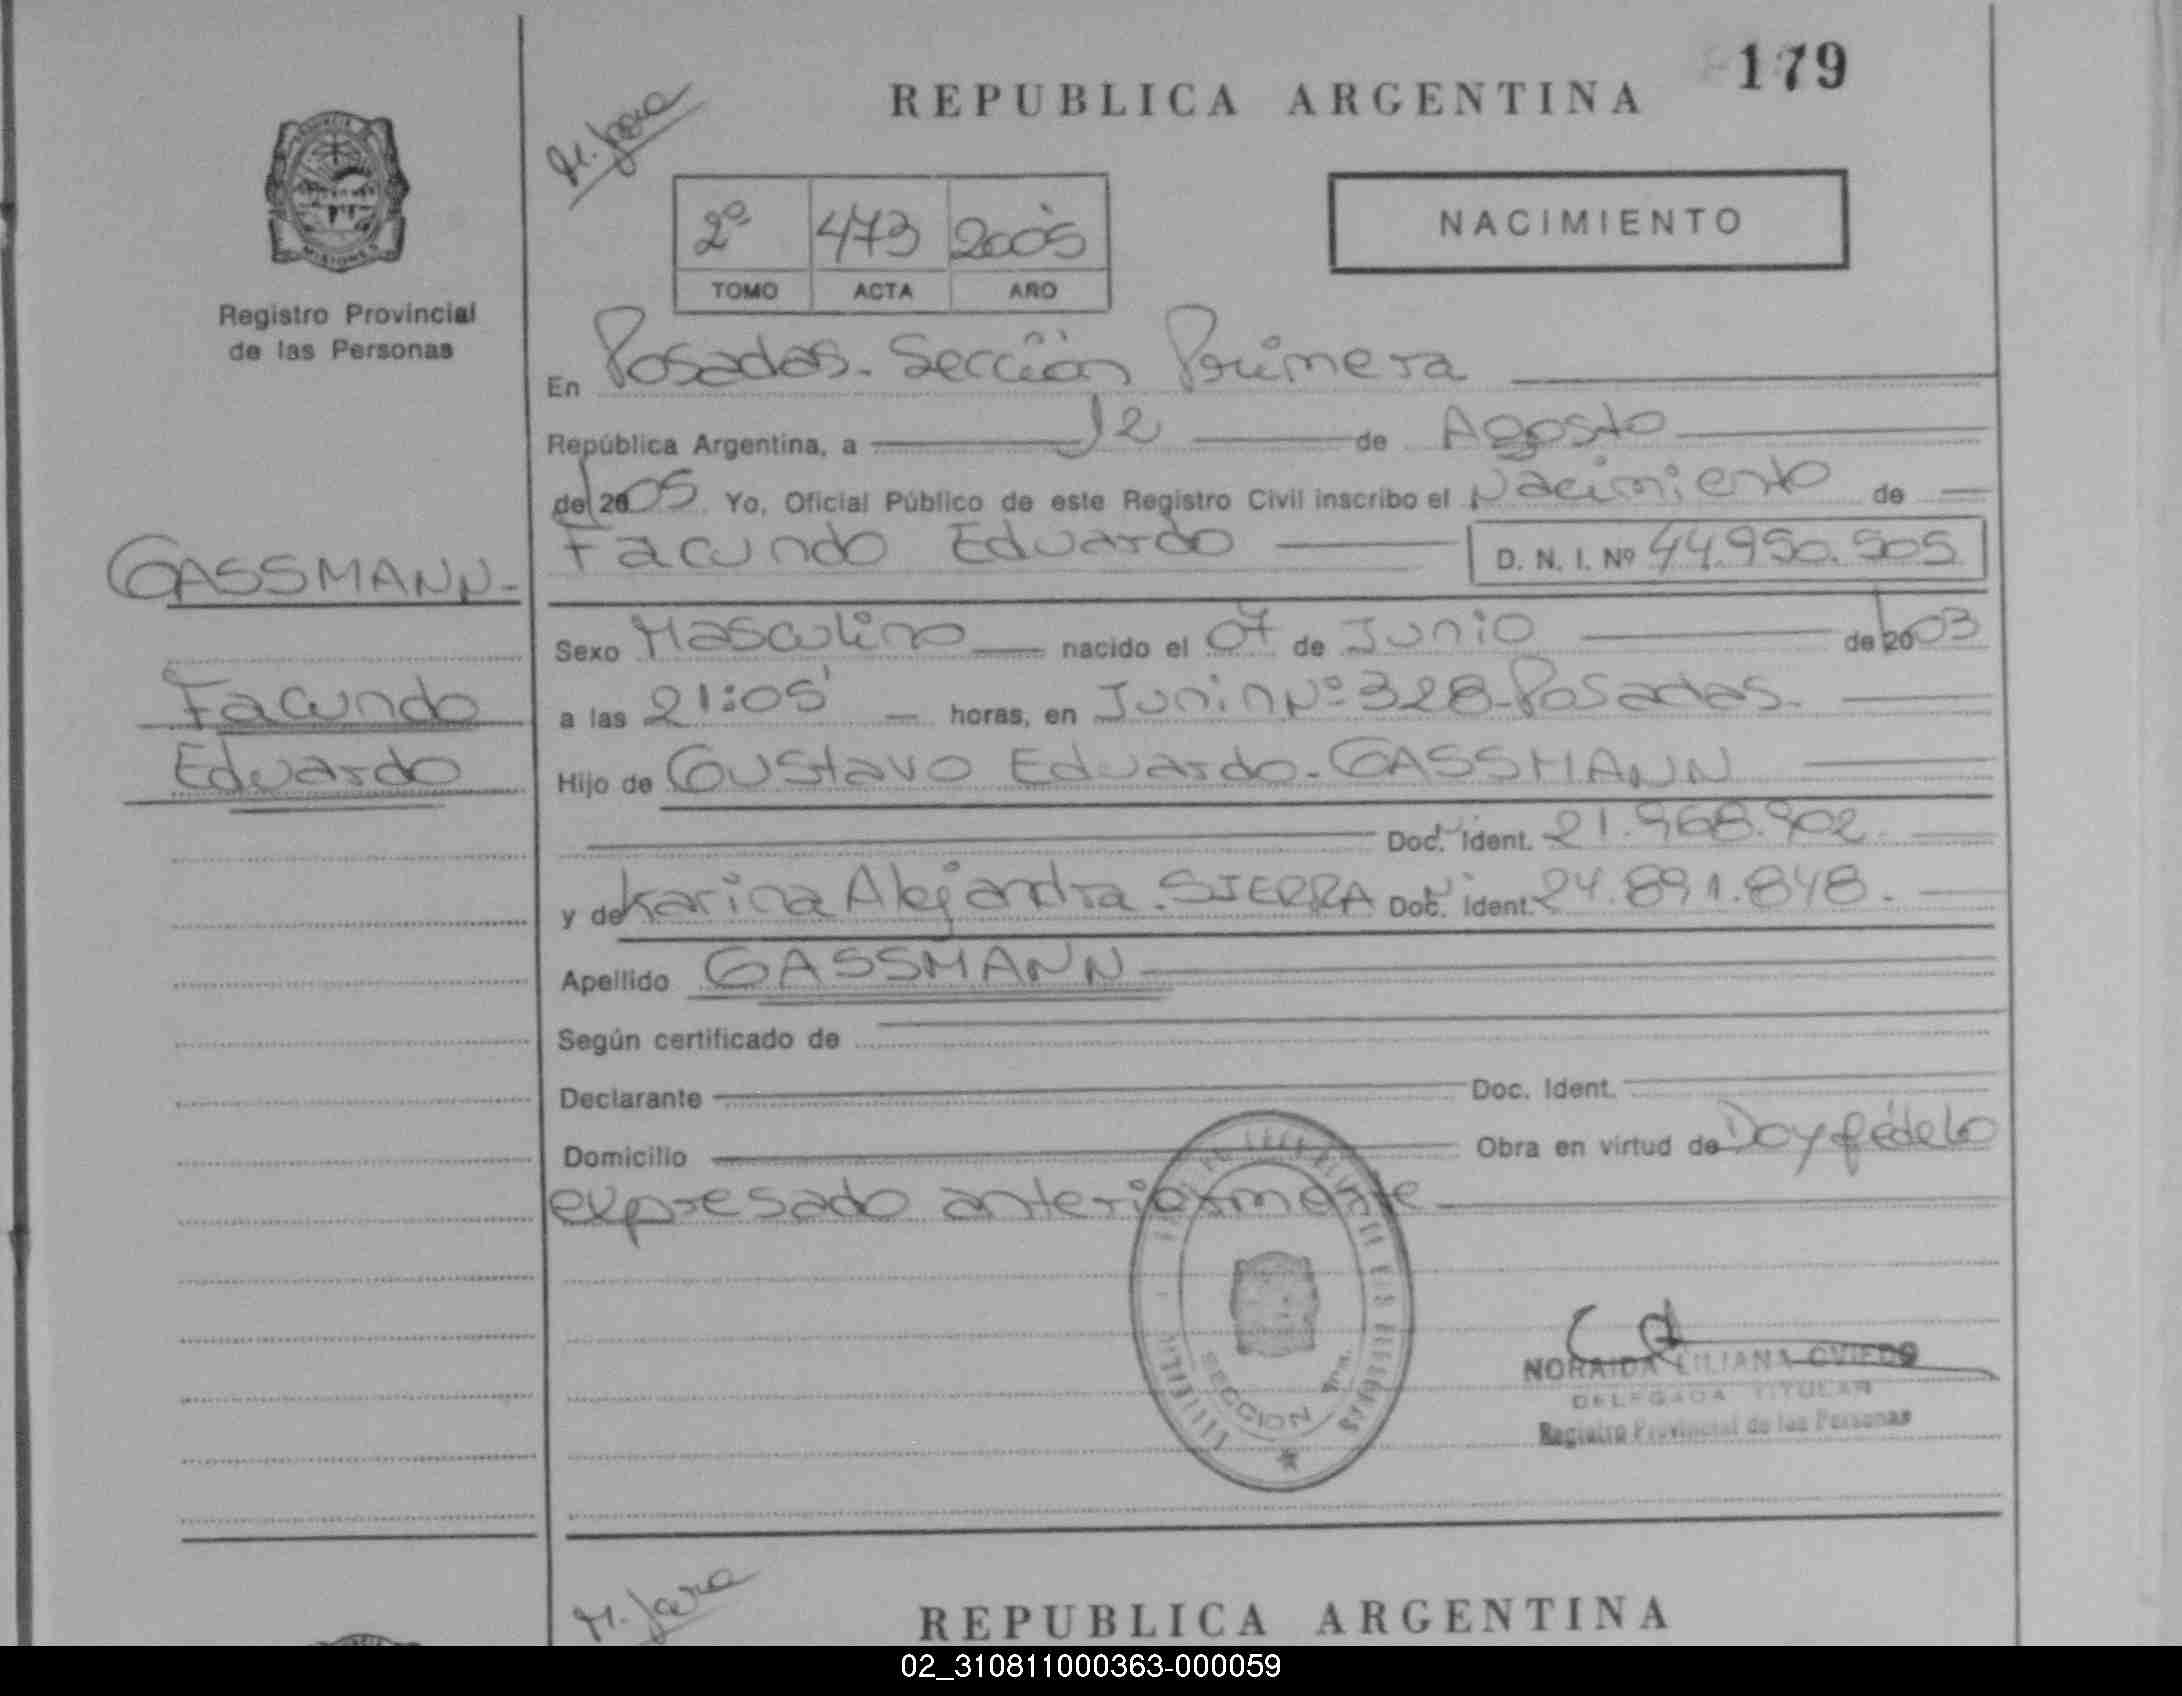 179
REPUBLICA ARGENTINA
M. Jara
NACIMIENTO
2º 473 2005
TOMO ACTA AÑO
PROVINCIA DE
MISIONES
Registro Provincial
de las Personas
En Posadas. Sección Primera
República Argentina, a 12 de Agosto
del 2005 Yo, Oficial Público de este Registro Civil inscribo el Nacimiento de
Facundo Eduardo D. N. I. Nº 44.950.505
GASSMANN-
Facundo
Eduardo
Sexo Masculino nacido el 07 de Junio de 2003
a las 21:05' horas, en Junin Nº 328-Posadas.
Hijo de Gustavo Eduardo. GASSMANN
Doc. Ident. 21.968.902.
y de Karina Alejandra. SIERRA Doc. Ident. 24.891.848.
Apellido GASSMANN
Según certificado de
Declarante Doc. Ident.
Domicilio Obra en virtud de Doy fé de lo
expresado anteriormente
SECCION 1ra.
NORAIDA LILIANA OVIEDO
DELEGADA TITULAR
Registro Provincial de las Personas
M. Jara
REPUBLICA ARGENTINA
02_310811000363-000059